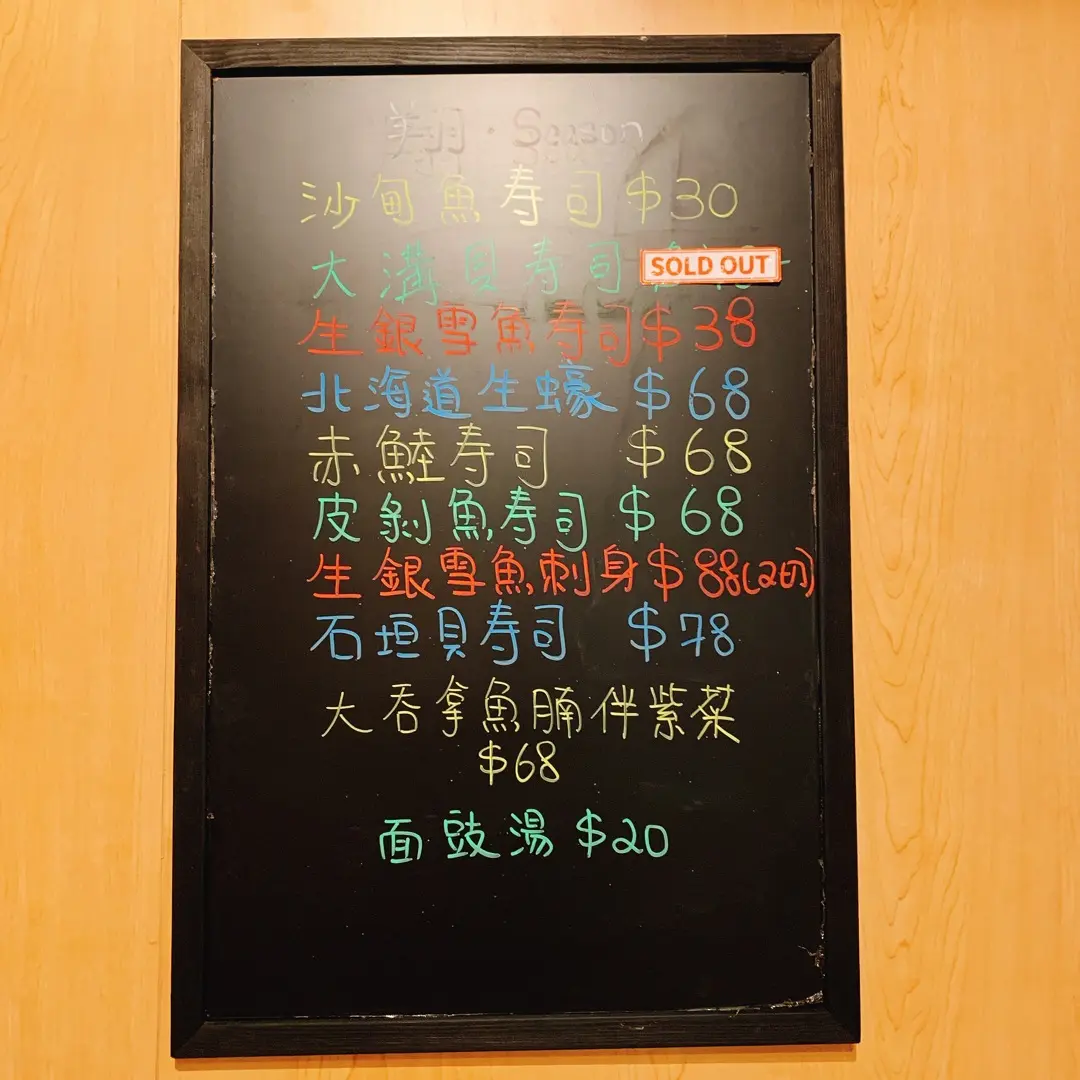 翔・Season
沙甸魚寿司 $30
大溝貝寿司 SOLD OUT
生銀雪魚寿司 $38
北海道生蠔 $68
赤鯥寿司 $68
皮剝魚寿司 $68
生銀雪魚刺身 $88(2切)
石垣貝寿司 $78
大吞拿魚腩伴紫菜
$68
面豉湯 $20